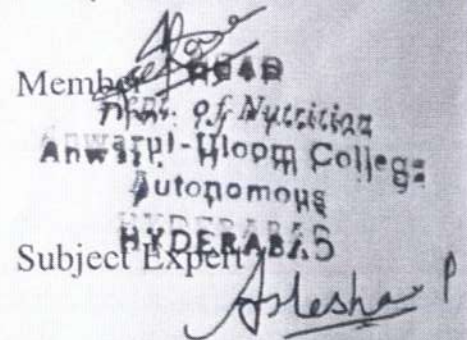 Member HEAD
Dept. of Nutrition
Anwarul-Uloom College
Autonomous
HYDERABAD
Subject Expert
Aslesha P